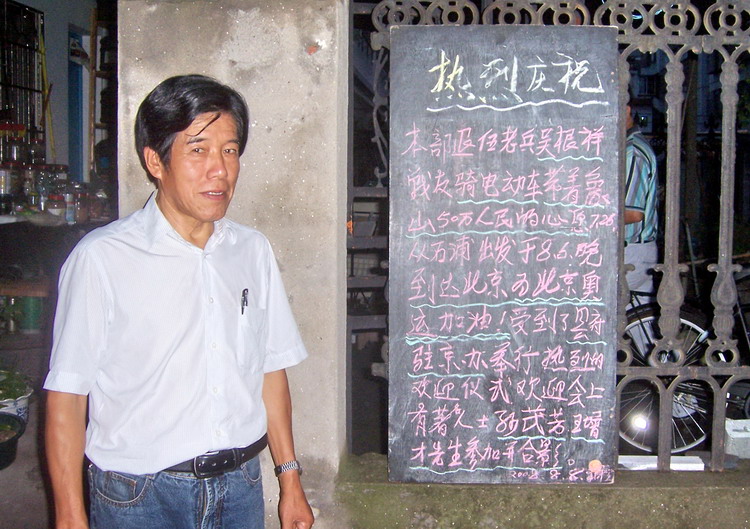 热烈庆祝
本部退伍老兵吴根祥
战友骑电动车带着象
山50万人民的心愿7.25
从石浦出发于8.6.晚
到达北京为北京奥
运加油！受到了县府
驻京办举行热烈的
欢迎仪式欢迎会上
有著名人士孙茂芳王增
才先生参加并合影。
2008.8.8.